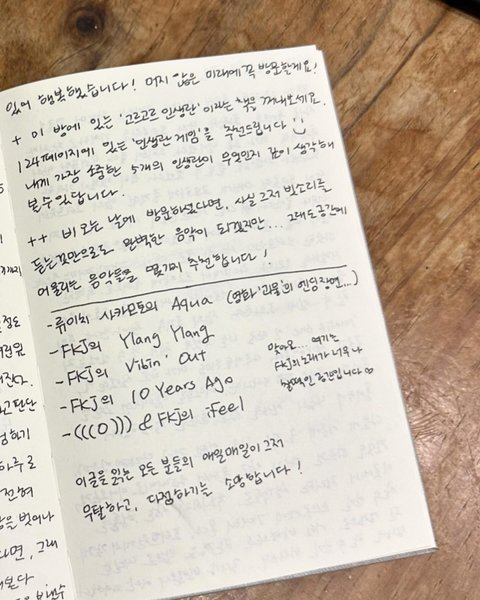 있어 행복했습니다! 머지 않은 미래에 꼭 방문할게요!
+ 이 방에 있는 '고르고르 인생관' 이라는 책을 꺼내보세요.
124페이지에 있는 '인생관 게임'을 추천드립니다
내게 가장 소중한 5개의 인생관이 무엇인지 깊이 생각해
볼 수 있답니다.
++ 비 오는 날에 방문하셨다면, 사실 그저 빗소리를
듣는것만으로도 완벽한 음악이 되겠지만... 그래도 공간에
어울리는 음악들을 몇가지 추천합니다!
-류이치 사카모토의 Aqua (영화 '괴물'의 엔딩장면...)
-FKJ의 Ylang Ylang
-FKJ의 Vibin' Out
-FKJ의 10 Years Ago
-(((O))) & FKJ의 iFeel
맞아요... 여기는
FKJ의 노래가 너무나
공간입니다
이 글을 읽는 모든 분들의 매일매일이 그저
무탈하고, 다정하기를 소망합니다!
하기
하루로
전혀
을 벗어나
다면, 그래